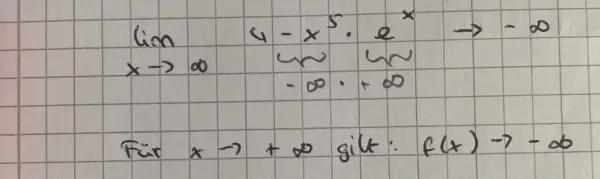 lim 4 - x⁵ · eˣ → - ∞
x → ∞ - ∞ · + ∞
Für x → + ∞ gilt: f(x) → - ∞